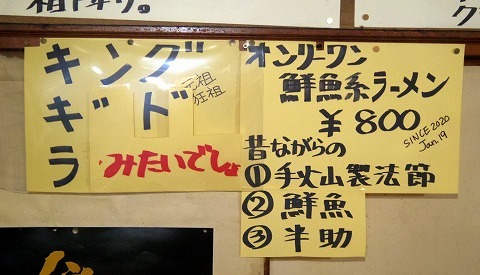 キング
ギド
ラ
元祖
狂祖
みたいでしょ
オンリーワン
鮮魚系ラーメン
￥800
SINCE 2020
Jan.19
昔ながらの
①手火山製法節
②鮮魚
③半助